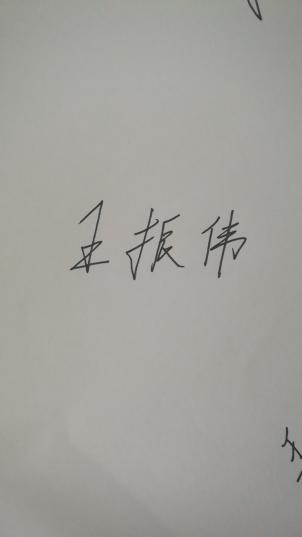 王振伟